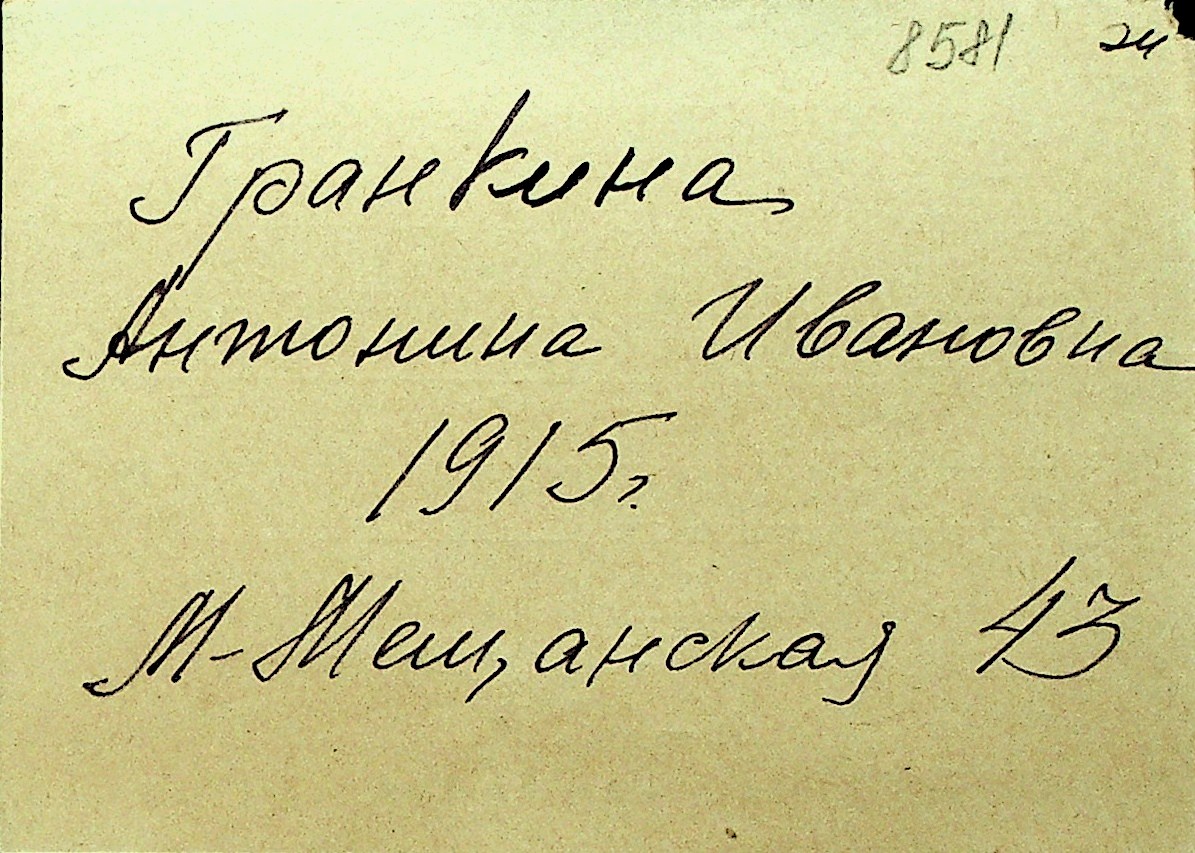 8581
Гранкина
Антонина Ивановна
1915г.
М-Мещанская 43